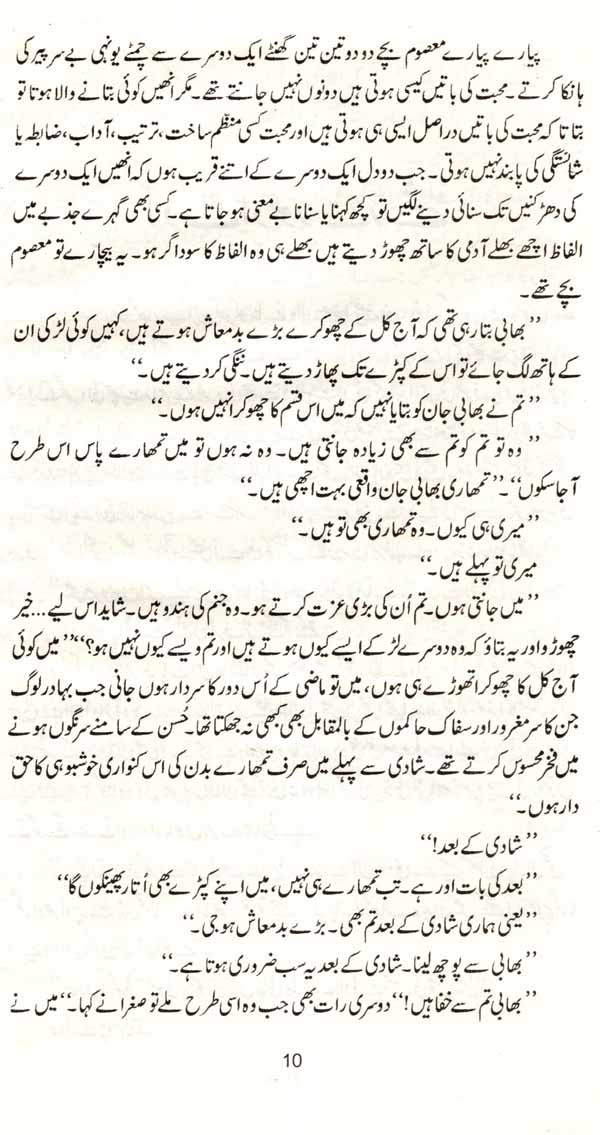 پیارے پیارے معصوم بچے دو دو تین تین گھنٹے ایک دوسرے سے چمٹے یونہی بے سرپیر کی
ہانکا کرتے۔ محبت کی باتیں کیسی ہوتی ہیں دونوں نہیں جانتے تھے۔ مگر انھیں کوئی بتانے والا ہوتا تو
بتاتا کہ محبت کی باتیں دراصل ایسی ہی ہوتی ہیں اور محبت کسی منظّم ساخت، ترتیب، آداب، ضابطہ یا
شائستگی کی پابند نہیں ہوتی۔ جب دو دل ایک دوسرے کے اتنے قریب ہوں کہ انھیں ایک دوسرے
کی دھڑکنیں تک سنائی دینے لگیں تو کچھ کہنا یا سنانا بے معنی ہو جاتا ہے۔ کسی بھی گہرے جذبے میں
الفاظ اچھے بھلے آدمی کا ساتھ چھوڑ دیتے ہیں بھلے ہی وہ الفاظ کا سوداگر ہو۔ یہ بیچارے تو معصوم
بچے تھے۔
’’بھابی بتا رہی تھی کہ آج کل کے چھوکرے بڑے بدمعاش ہوتے ہیں، کہیں کوئی لڑکی ان
کے ہاتھ لگ جائے تو اس کے کپڑے تک پھاڑ دیتے ہیں۔ ننگی کر دیتے ہیں۔‘‘
’’تم نے بھابی جان کو بتایا نہیں کہ میں اس قسم کا چھوکرا نہیں ہوں۔‘‘
’’وہ تو تم کو تم سے بھی زیادہ جانتی ہیں۔ وہ نہ ہوں تو میں تمھارے پاس اس طرح
آ جا سکوں‘‘۔ ’’تمھاری بھابی جان واقعی بہت اچھی ہیں۔‘‘
’’میری ہی کیوں۔ وہ تمھاری بھی تو ہیں۔‘‘
میری تو پہلے ہیں۔‘‘
’’میں جانتی ہوں۔ تم اُن کی بڑی عزت کرتے ہو۔ وہ جنم کی ہندو ہیں۔ شاید اس لیے... خیر
چھوڑو اور یہ بتاؤ کہ وہ دوسرے لڑکے ایسے کیوں ہوتے ہیں اور تم ویسے کیوں نہیں ہو؟‘‘ ’’میں کوئی
آج کل کا چھوکرا تھوڑے ہی ہوں، میں تو ماضی کے اُس دور کا سردار ہوں جانی جب بہادر لوگ
جن کا سر مغرور اور سفاک حاکموں کے بالمقابل بھی بھی نہ جھکتا تھا۔ حُسن کے سامنے سرنگوں ہونے
میں فخر محسوس کرتے تھے۔ شادی سے پہلے میں صرف تمھارے بدن کی اس کنواری خوشبو ہی کا حق
دار ہوں۔‘‘
’’شادی کے بعد!‘‘
’’بعد کی بات اور ہے۔ تب تمھارے ہی نہیں، میں اپنے کپڑے بھی اُتار پھینکوں گا‘‘
’’یعنی ہماری شادی کے بعد تم بھی۔ بڑے بدمعاش ہو جی۔‘‘
’’بھابی سے پوچھ لینا۔ شادی کے بعد یہ سب ضروری ہوتا ہے۔‘‘
’’بھابی تم سے خفا ہیں!‘‘ دوسری رات بھی جب وہ اسی طرح ملے تو صغرا نے کہا۔ ’’میں نے
10